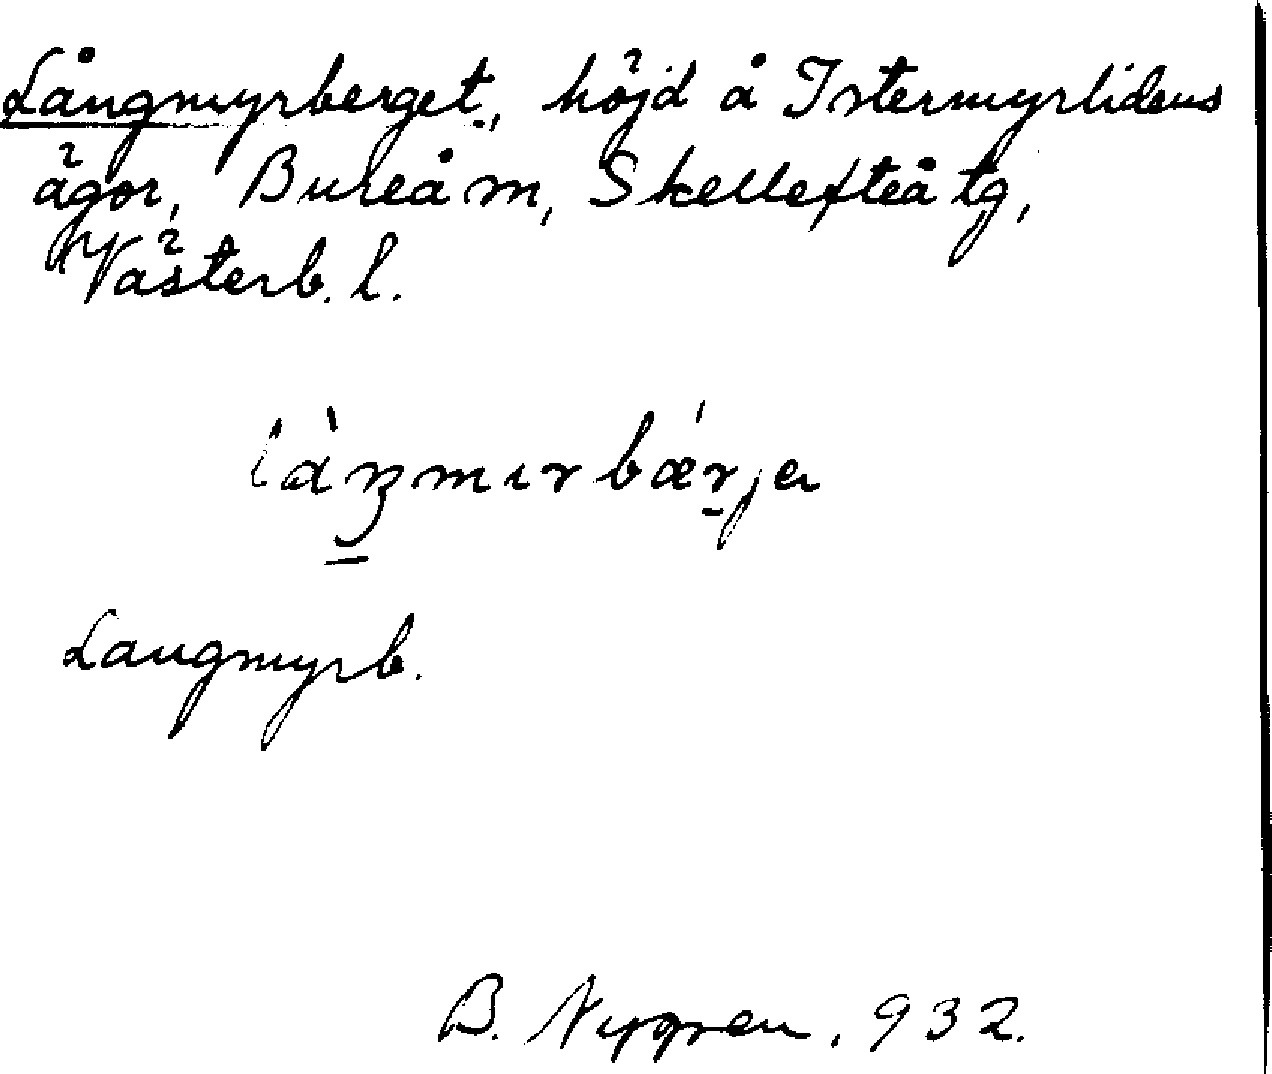 Långmyrberget, höjd å Istermyrlidens
ägor, Bureå m, Skellefteå tg,
Västerb. l.
làŋmɪrbǽr̠jɐ
Langmyrb.
B. Nygren, 932.